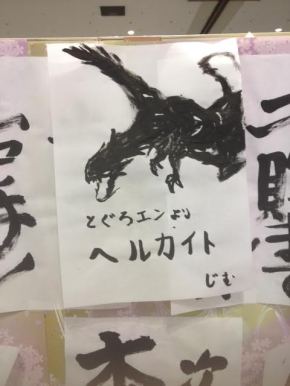 とぐろエンより
ヘルカイト
じむ
本
次